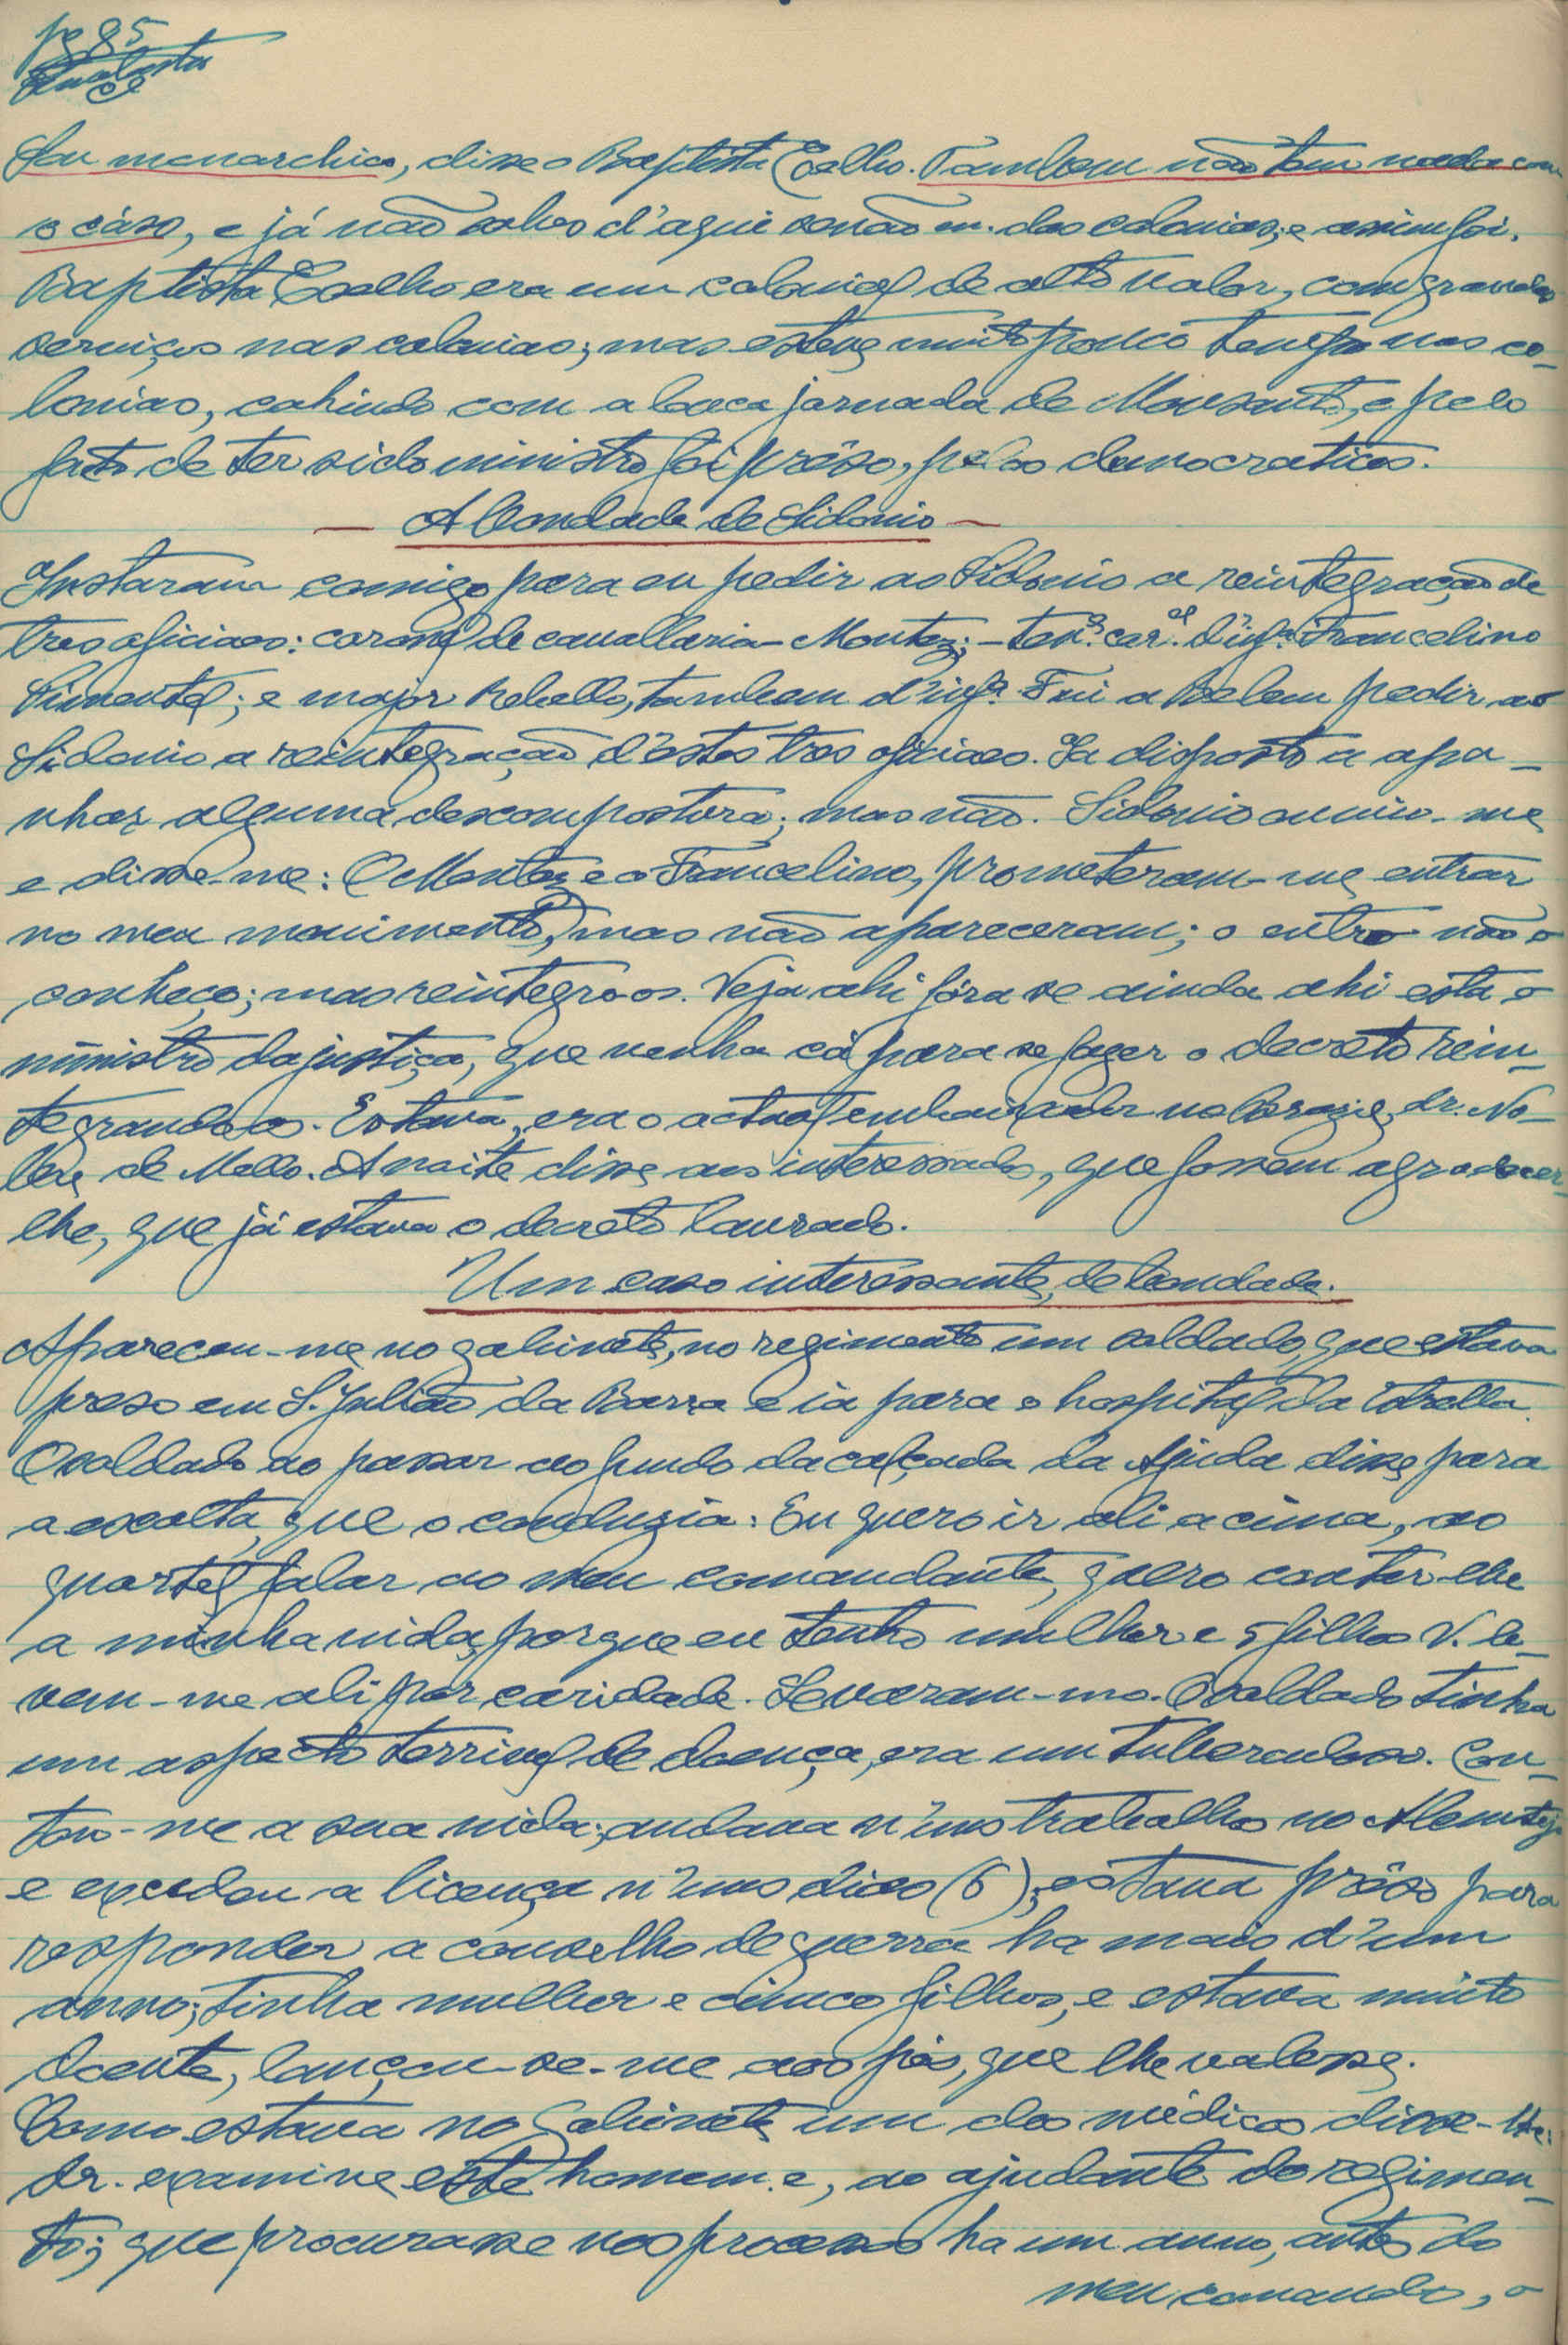 pg 85
Sou monarchico, disse o Baptista Coelho. Tambem não tem nada com
o cáso, e já não sahes d'aqui senão m. das colonias; e assim foi.
Baptista Coelho era um colonial de alto valor, com grandes
serviços nas colonias; mas esteve muito pouco tempo nas co-
lonias, cahindo com a louca jornada de Monsanto, e pelo
facto de ter sido ministro foi prêso, pelos democraticos.
— A bondade de Sidonio —
Instaram comigo para eu pedir ao Sidonio a reintegração de
tres oficiaes: coronel de cavallaria - Montez; - ten.e cor.el d'inf.a Francelino
Pimentel; e major Rebello, tambem d'inf.a Fui a Belem pedir ao
Sidonio a reintegração d'estes tres oficiaes. Ia disposto a apa-
nhar alguma descompostura; mas não. Sidonio ouviu-me
e disse-me: O Montez e o Francelino, prometeram-me entrar
no meu movimento, mas não apareceram; o outro não o
conheço; mas reintegro-os. Veja ahi fóra se ainda ahi está o
ministro da justiça, que venha cá para se fazer o decreto rein-
tegrando-os. Estava, era o actual embaixador no Brazil, dr. No-
bre de Mello. A noite disse aos interessados, que fossem agradecer-
lhe, que já estava o decreto lavrado.
Um caso interéssante, de bondade.
Apareceu-me no gabinete, no regimento um soldado, que estava
preso em S. Julião da Barra e ia para o hospital da Estrella.
O soldado ao passar ao fundo da calçada da Ajuda disse para
a escolta, que o conduzia: Eu quero ir ali acima, ao
quartel falar ao meu comandante, quero contar-lhe
a minha vida, porque eu tenho mulher e 5 filhos V. le-
vem-me ali por caridade. Levaram-mo. O soldado tinha
um aspecto terrivel de doença, era um tuberculoso. Con-
tou-me a sua vida; andava n'uns trabalhos no Alemtejo
e excedeu a licença n'uns dias (6); estava prêso para
responder a conselho de guerra ha mais d'um
anno; tinha mulher e cinco filhos, e estava muito
doente, lançou-se-me aos pés, que lhe valesse.
Como estava no gabinete um dos médicos disse-lhe:
dr. examine este homem. e, ao ajudante do regimen-
to; que procurasse nos processos ha um anno, antes do
meu comando, o